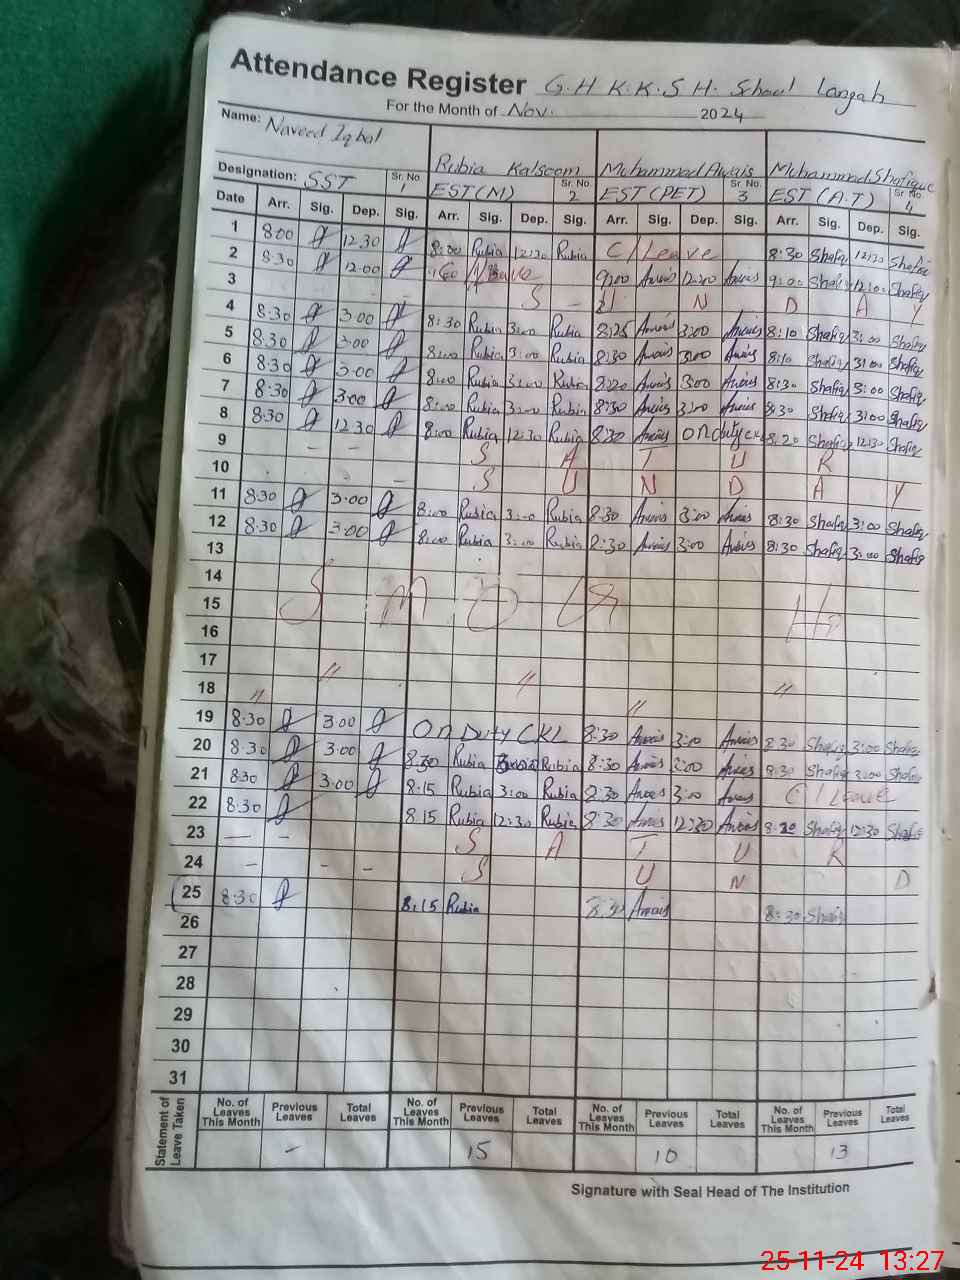 Attendance Register G.H K.K.S H. School Langah
For the Month of Nov. 2024
Name: Naveed Iqbal Rubia Kalsoom Muhammad Awais Muhammad Shafique
Designation: SST Sr. No. 1 EST (M) Sr. No. 2 EST (PET) Sr. No. 3 EST (A.T) Sr. No. 4
Date Arr. Sig. Dep. Sig. Arr. Sig. Dep. Sig. Arr. Sig. Dep. Sig. Arr. Sig. Dep. Sig.
1 8:00 12.30 8:00 Rubia 12:30 Rubia C/Leave 8:30 Shafiq 12:30 Shafiq
2 8.30 12.00 9:00 Awais 12:00 Awais 9:00 Shafiq 12:00 Shafiq
3 - - S - U N D A Y
4 8.30 3.00 8:30 Rubia 3:00 Rubia 8:25 Awais 3:00 Awais 8:10 Shafiq 3:00 Shafiq
5 8.30 3.00 8:00 Rubia 3:00 Rubia 8:30 Awais 3:00 Awais 8:10 Shafiq 3:00 Shafiq
6 8.30 3.00 8:00 Rubia 3:00 Rubia 8:20 Awais 3:00 Awais 8:30 Shafiq 3:00 Shafiq
7 8.30 3.00 8:00 Rubia 3:00 Rubia 8:30 Awais 3:00 Awais 8:30 Shafiq 3:00 Shafiq
8 8.30 12.30 8:00 Rubia 12:30 Rubia 8:30 Awais on duty 8:20 Shafiq 12:30 Shafiq
9 - - S A T U R
10 - S U N D A Y
11 8.30 3.00 8:00 Rubia 3:00 Rubia 8:30 Awais 3:00 Awais 8:30 Shafiq 3:00 Shafiq
12 8.30 3.00 8:00 Rubia 3:00 Rubia 8:30 Awais 3:00 Awais 8:30 Shafiq 3:00 Shafiq
13
14
15 S m o
16
17
18 " " " " "
19 8.30 3.00 On Duty CKL 8:30 Awais 3:00 Awais 8:30 Shafiq 3:00 Shafiq
20 8.30 3.00 8:30 Rubia Rubia 8:30 Awais 3:00 Awais 8:30 Shafiq 3:00 Shafiq
21 8.30 3.00 8:15 Rubia 3:00 Rubia 8:30 Awais 3:00 Awais C/Leave
22 8.30 8:15 Rubia 12:30 Rubia 8:30 Awais 12:30 Awais 8:30 Shafiq 12:30 Shafiq
23 - - S A T U R
24 - - - S U N D
25 8.30 8:15 Rubia 8:30 Awais 8:30 Shafiq
26
27
28
29
30
31
Statement of Leave Taken
No. of Leaves This Month Previous Leaves Total Leaves No. of Leaves This Month Previous Leaves Total Leaves No. of Leaves This Month Previous Leaves Total Leaves No. of Leaves This Month Previous Leaves Total Leaves
- 15 10 13
Signature with Seal Head of The Institution
25-11-24 13:27